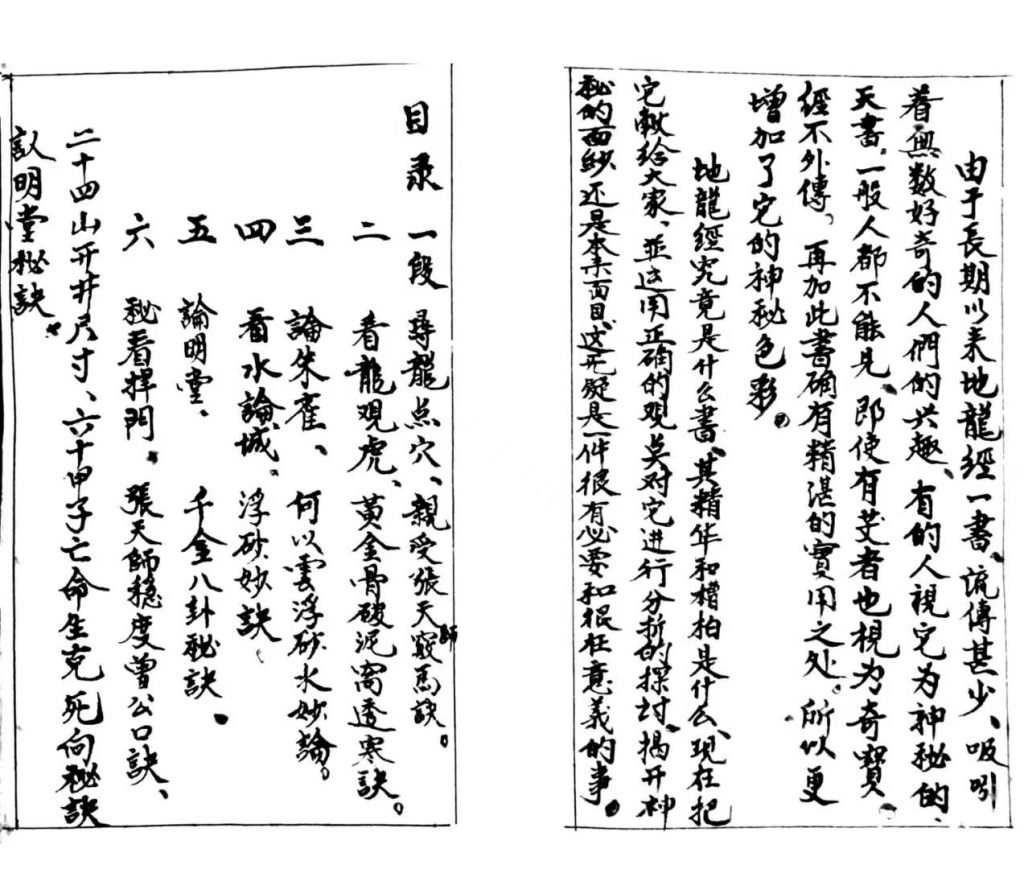 由于長期以来地龍經一書、流傳甚少、吸引
着無数好奇的人們的兴趣、有的人視它为神秘的、
天書，一般人都不能見、即使有芝者也視为奇寶、
經不外傳，再加此書确有精湛的實用之处、所以更
增加了它的神秘色彩。
地龍經究竟是什么書、其精华和糟柏是什么、现在把
它献给大家、並运用正确的观点对它进行分折的探讨、揭开神
秘的面纱还是本来面目、这无疑是一件很有必要和很在意義的事。
目录 一段 尋龍点穴、親受張天師竅馬訣。
二 看龍观虎、黃金骨破泥窩透寒訣。
三 論朱雀、何以雲浮砂水妙論。
四 看水論城、浮砂妙訣
五 論明堂、千金八卦秘訣、
六 秘看捍門。張天師穏度曽公口訣、
二十四山开井尺寸、六十甲子亡命生克死向秘訣
訍明堂秘訣。